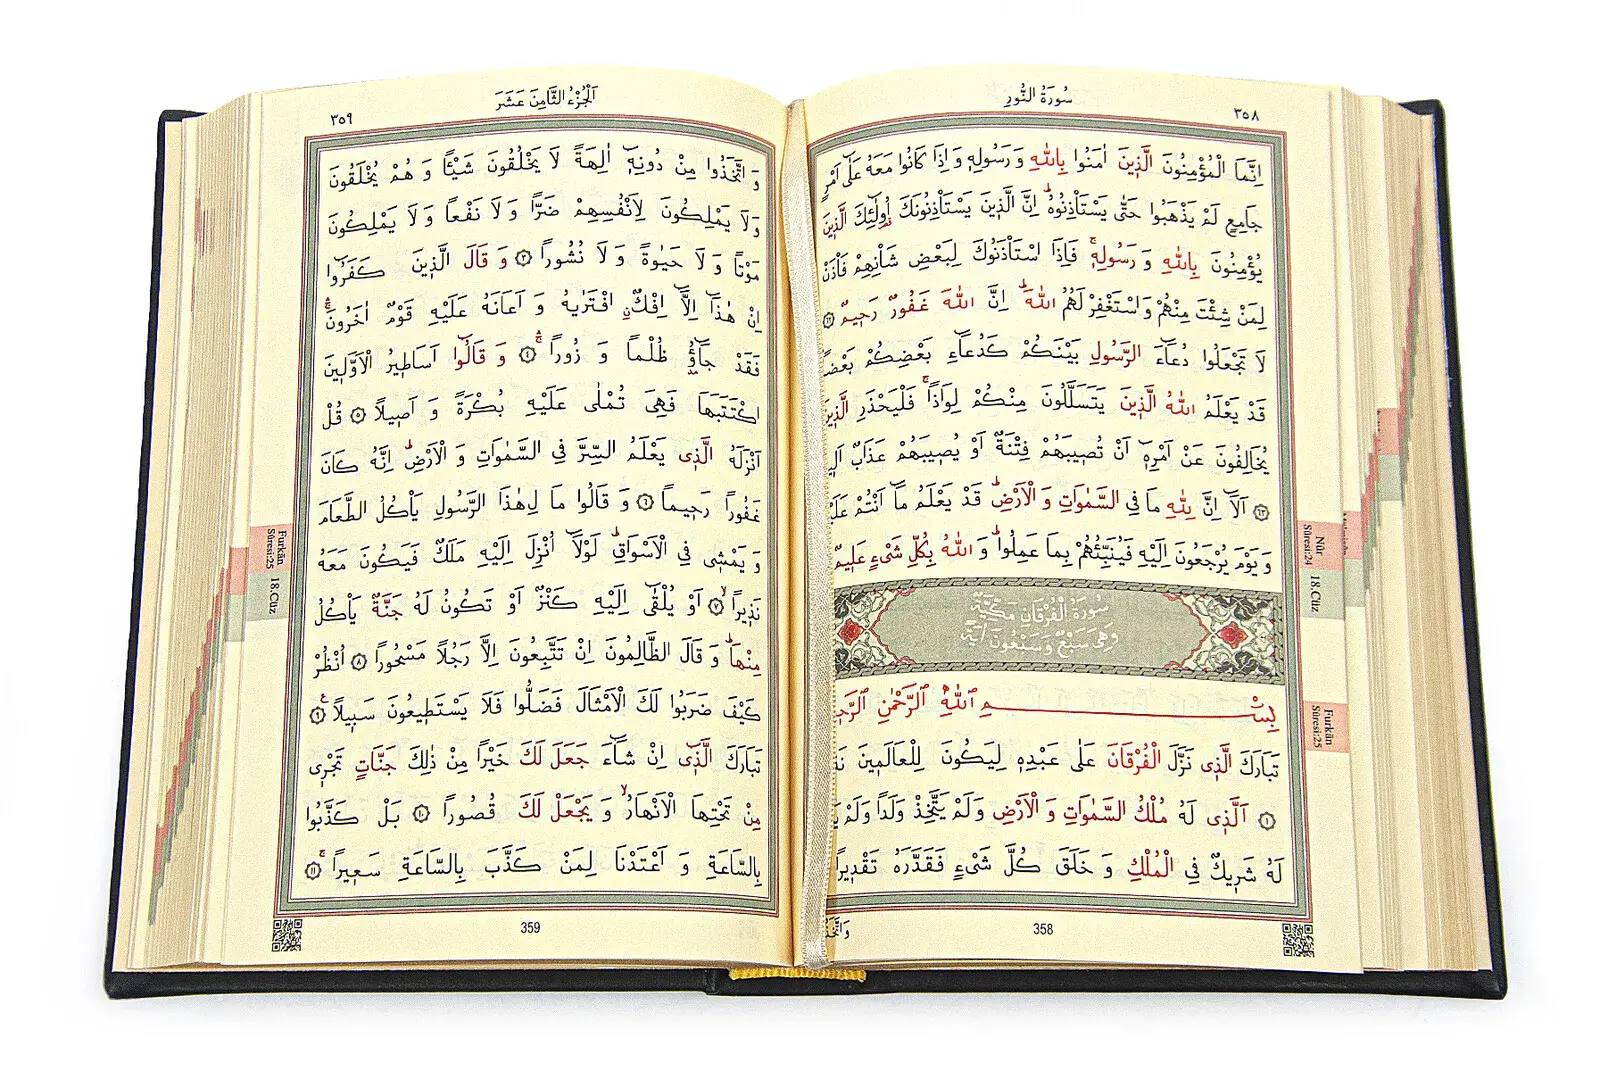 سُورَةُ النُّورِ
٣٥٨
اِنَّمَا الْمُؤْمِنُونَ الَّذ۪ينَ اٰمَنُوا بِاللّٰهِ وَ رَسُولِه۪ وَ اِذَا كَانُوا مَعَهُ عَلٰٓى اَمْرٍ
جَامِعٍ لَمْ يَذْهَبُوا حَتّٰى يَسْتَأْذِنُوهُۜ اِنَّ الَّذ۪ينَ يَسْتَأْذِنُونَكَ اُو۬لٰٓئِكَ الَّذ۪ينَ
يُؤْمِنُونَ بِاللّٰهِ وَ رَسُولِه۪ۚ فَاِذَا اسْتَأْذَنُوكَ لِبَعْضِ شَأْنِهِمْ فَأْذَنْ
لِمَنْ شِئْتَ مِنْهُمْ وَاسْتَغْفِرْ لَهُمُ اللّٰهَۜ اِنَّ اللّٰهَ غَفُورٌ رَح۪يمٌ ﴿٦٢﴾
لَا تَجْعَلُوا دُعَٓاءَ الرَّسُولِ بَيْنَكُمْ كَدُعَٓاءِ بَعْضِكُمْ بَعْضًا
قَدْ يَعْلَمُ اللّٰهُ الَّذ۪ينَ يَتَسَلَّلُونَ مِنْكُمْ لِوَاذًاۚ فَلْيَحْذَرِ الَّذ۪ينَ
يُخَالِفُونَ عَنْ اَمْرِه۪ٓ اَنْ تُص۪يبَهُمْ فِتْنَةٌ اَوْ يُص۪يبَهُمْ عَذَابٌ
﴿٦٣﴾ اَلَٓا اِنَّ لِلّٰهِ مَا فِي السَّمٰوَاتِ وَ الْاَرْضِۜ قَدْ يَعْلَمُ مَٓا اَنْتُمْ
وَ يَوْمَ يُرْجَعُونَ اِلَيْهِ فَيُنَبِّئُهُمْ بِمَا عَمِلُواۜ وَ اللّٰهُ بِكُلِّ شَيْءٍ عَل۪يمٌ
سُورَةُ الْفُرْقَانِ مَكِّيَّةٌ
وَهِيَ سَبْعٌ وَسَبْعُونَ اٰيَةً
بِسْمِ اللّٰهِ الرَّحْمٰنِ
تَبَارَكَ الَّذ۪ي نَزَّلَ الْفُرْقَانَ عَلٰى عَبْدِه۪ لِيَكُونَ لِلْعَالَم۪ينَ
﴿١﴾ اَلَّذ۪ي لَهُ مُلْكُ السَّمٰوَاتِ وَ الْاَرْضِ وَلَمْ يَتَّخِذْ وَلَدًا وَلَمْ
لَهُ شَر۪يكٌ فِي الْمُلْكِ وَ خَلَقَ كُلَّ شَيْءٍ فَقَدَّرَهُ تَقْد۪يرًا
358
Nûr
Sûresi:24
18.Cüz
Furkân
Sûresi:25
اَلْجُزْءُ الثَّامِنَ عَشَرَ
٣٥٩
وَ اتَّخَذُوا مِنْ دُونِه۪ٓ اٰلِهَةً لَا يَخْلُقُونَ شَيْـًٔا وَ هُمْ يُخْلَقُونَ
وَ لَا يَمْلِكُونَ لِاَنْفُسِهِمْ ضَرًّا وَ لَا نَفْعًا وَ لَا يَمْلِكُونَ
مَوْتًا وَ لَا حَيٰوةً وَ لَا نُشُورًا ﴿٣﴾ وَ قَالَ الَّذ۪ينَ كَفَرُٓوا
اِنْ هٰذَٓا اِلَّٓا اِفْكٌۨ افْتَرٰيهُ وَ اَعَانَهُ عَلَيْهِ قَوْمٌ اٰخَرُونَۚۛ
فَقَدْ جَٓاؤُ۫ ظُلْمًا وَ زُورًاۚۛ ﴿٤﴾ وَ قَالُٓوا اَسَاط۪يرُ الْاَوَّل۪ينَ
اكْتَتَبَهَا فَهِيَ تُمْلٰى عَلَيْهِ بُكْرَةً وَ اَص۪يلًا ﴿٥﴾ قُلْ
اَنْزَلَهُ الَّذ۪ي يَعْلَمُ السِّرَّ فِي السَّمٰوَاتِ وَ الْاَرْضِۜ اِنَّهُ كَانَ
غَفُورًا رَح۪يمًا ﴿٦﴾ وَ قَالُوا مَا لِ هٰذَا الرَّسُولِ يَأْكُلُ الطَّعَامَ
وَ يَمْش۪ي فِي الْاَسْوَاقِۜ لَوْلَٓا اُنْزِلَ اِلَيْهِ مَلَكٌ فَيَكُونَ مَعَهُ
نَذ۪يرًاۙ ﴿٧﴾ اَوْ يُلْقٰٓى اِلَيْهِ كَنْزٌ اَوْ تَكُونُ لَهُ جَنَّةٌ يَأْكُلُ
مِنْهَاۜ وَ قَالَ الظَّالِمُونَ اِنْ تَتَّبِعُونَ اِلَّا رَجُلًا مَسْحُورًا ﴿٨﴾ اُنْظُرْ
كَيْفَ ضَرَبُوا لَكَ الْاَمْثَالَ فَضَلُّوا فَلَا يَسْتَط۪يعُونَ سَب۪يلًا۟ ﴿٩﴾
تَبَارَكَ الَّذ۪ٓي اِنْ شَٓاءَ جَعَلَ لَكَ خَيْرًا مِنْ ذٰلِكَ جَنَّاتٍ تَجْر۪ي
مِنْ تَحْتِهَا الْاَنْهَارُۙ وَ يَجْعَلْ لَكَ قُصُورًا ﴿١٠﴾ بَلْ كَذَّبُوا
بِالسَّاعَةِ وَ اَعْتَدْنَا لِمَنْ كَذَّبَ بِالسَّاعَةِ سَع۪يرًاۚ ﴿١١﴾
359
Furkân
Sûresi:25
18.Cüz